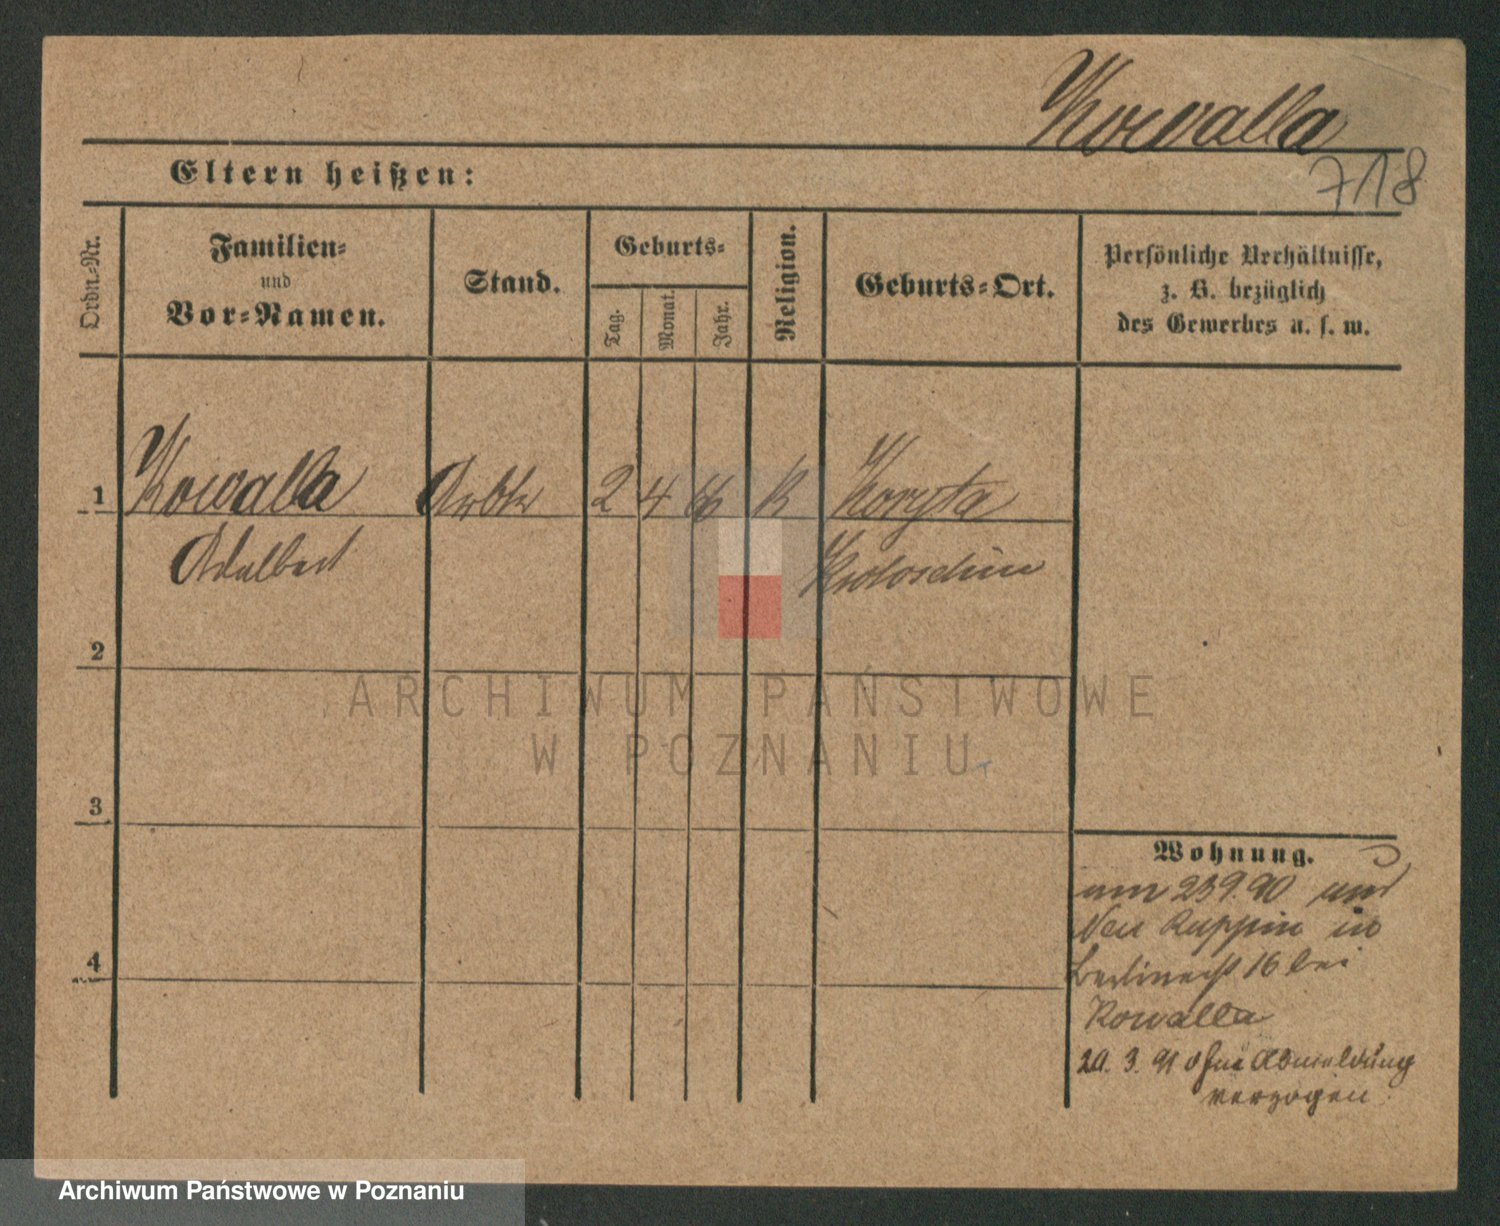 Kowalla
718
Eltern heißen:
Ordn.-Nr.
Familien-
und
Vor-Namen.
Stand.
Geburts-
Tag.
Monat.
Jahr.
Religion.
Geburts-Ort.
Persönliche Verhältnisse,
z. B. bezüglich
des Gewerbes u. s. w.
1
Kowalla
Arbtr
2
4
66
K
Koryta
Adalbert
Krotoschin
2
ARCHIWUM PAŃSTWOWE
W POZNANIU
3
Wohnung.
am 23 9. 90 aus
Neu Ruppin in
Berlinerst 16 bei
Kowalla
4
20. 3. 91 ohne Abmeldung
verzogen.
Archiwum Państwowe w Poznaniu